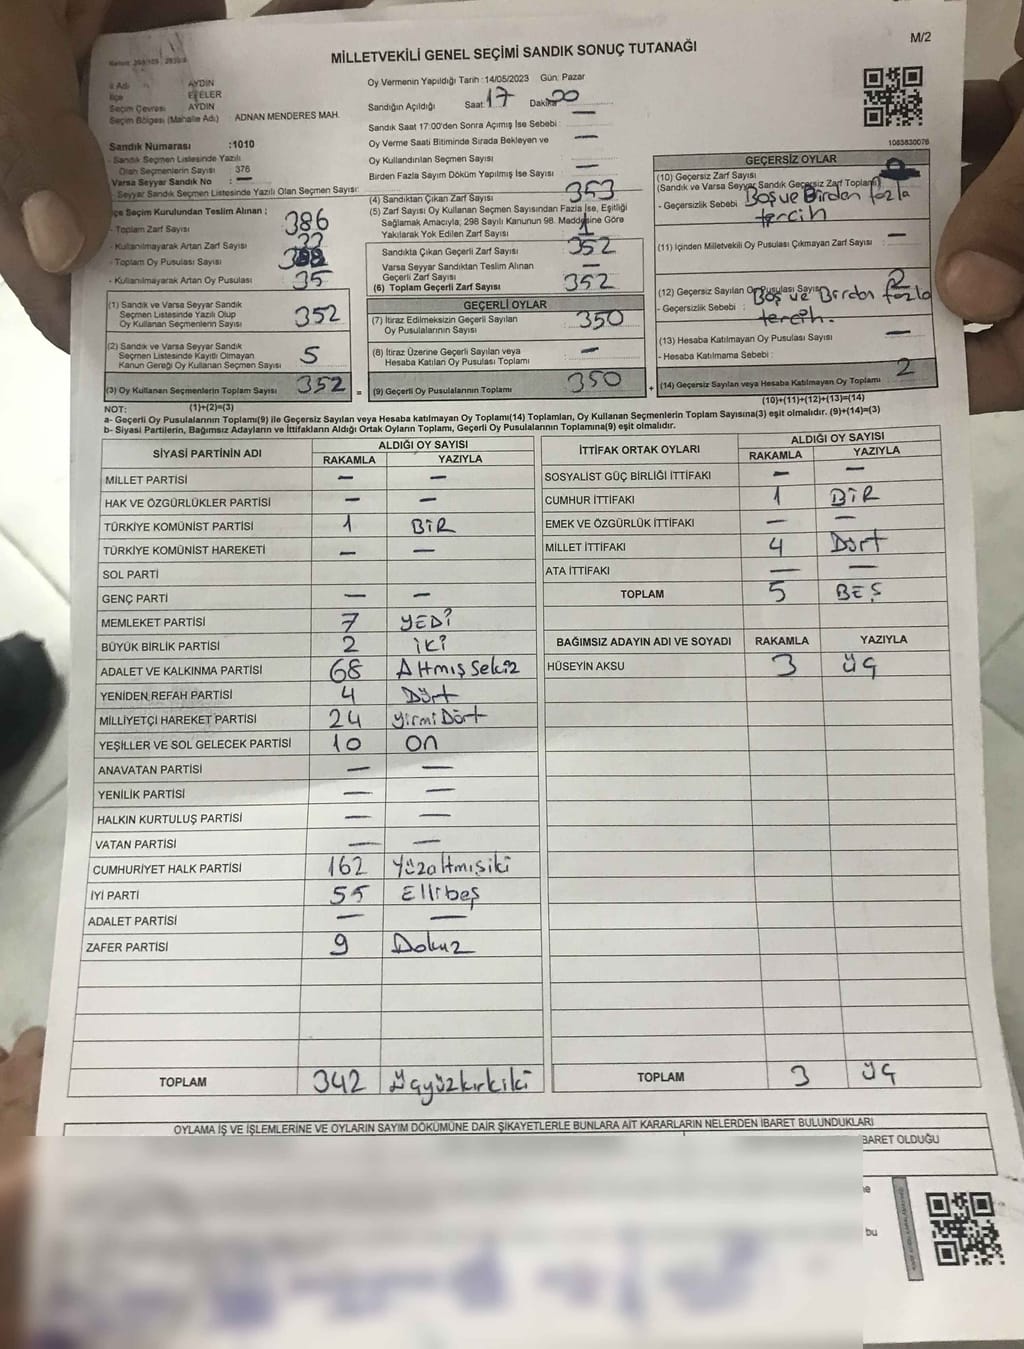 MİLLETVEKİLİ GENEL SEÇİMİ SANDIK SONUÇ TUTANAĞI
M/2
İl Adı AYDIN
İlçe EFELER
Seçim Çevresi AYDIN
Seçim Bölgesi (Mahalle Adı) ADNAN MENDERES MAH.
Sandık Numarası :1010
- Sandık Seçmen Listesinde Yazılı
Olan Seçmenlerin Sayısı 376
Varsa Seyyar Sandık No : —
- Seyyar Sandık Seçmen Listesinde Yazılı Olan Seçmen Sayısı:
Oy Vermenin Yapıldığı Tarih :14/05/2023 Gün: Pazar
Sandığın Açıldığı Saat: 17 Dakika 00
Sandık Saat 17:00'den Sonra Açımış İse Sebebi : —
Oy Verme Saati Bitiminde Sırada Bekleyen ve —
Oy Kullandırılan Seçmen Sayısı
Birden Fazla Sayım Döküm Yapılmış İse Sayısı : —
1083830076
İlçe Seçim Kurulundan Teslim Alınan ;
- Toplam Zarf Sayısı 386
- Kullanılmayarak Artan Zarf Sayısı 33
- Toplam Oy Pusulası Sayısı
- Kullanılmayarak Artan Oy Pusulası 35
(1) Sandık ve Varsa Seyyar Sandık
Seçmen Listesinde Yazılı Olup
Oy Kullanan Seçmenlerin Sayısı 352
(2) Sandık ve Varsa Seyyar Sandık
Seçmen Listesinde Kayıtlı Olmayan
Kanun Gereği Oy Kullanan Seçmen Sayısı 5
(3) Oy Kullanan Seçmenlerin Toplam Sayısı 352 =
(1)+(2)=(3)
(4) Sandıktan Çıkan Zarf Sayısı 353
(5) Zarf Sayısı Oy Kullanan Seçmen Sayısından Fazla İse, Eşitliği
Sağlamak Amacıyla; 298 Sayılı Kanunun 98. Maddesine Göre
Yakılarak Yok Edilen Zarf Sayısı : 1
Sandıkta Çıkan Geçerli Zarf Sayısı 352
Varsa Seyyar Sandıktan Teslim Alınan
Geçerli Zarf Sayısı —
(6) Toplam Geçerli Zarf Sayısı 352
GEÇERLİ OYLAR
(7) İtiraz Edilmeksizin Geçerli Sayılan
Oy Pusulalarının Sayısı : 350
(8) İtiraz Üzerine Geçerli Sayılan veya
Hesaba Katılan Oy Pusulası Toplamı : —
(9) Geçerli Oy Pusulalarının Toplamı : 350 +
GEÇERSİZ OYLAR
(10) Geçersiz Zarf Sayısı
(Sandık ve Varsa Seyyar Sandık Geçersiz Zarf Toplamı)
- Geçersizlik Sebebi Boş ve Birden fazla
tercih
(11) İçinden Milletvekili Oy Pusulası Çıkmayan Zarf Sayısı —
(12) Geçersiz Sayılan Oy Pusulası Sayısı 2
- Geçersizlik Sebebi : Boş ve Birden fazla
tercih.
(13) Hesaba Katılmayan Oy Pusulası Sayısı —
- Hesaba Katılmama Sebebi :
(14) Geçersiz Sayılan veya Hesaba Katılmayan Oy Toplamı : 2
(10)+(11)+(12)+(13)=(14)
NOT:
a- Geçerli Oy Pusulalarının Toplamı(9) ile Geçersiz Sayılan veya Hesaba katılmayan Oy Toplamı(14) Toplamları, Oy Kullanan Seçmenlerin Toplam Sayısına(3) eşit olmalıdır. (9)+(14)=(3)
b- Siyasi Partilerin, Bağımsız Adayların ve İttifakların Aldığı Ortak Oyların Toplamı, Geçerli Oy Pusulalarının Toplamına(9) eşit olmalıdır.
SİYASİ PARTİNİN ADI ALDIĞI OY SAYISI
RAKAMLA YAZIYLA
MİLLET PARTİSİ — —
HAK VE ÖZGÜRLÜKLER PARTİSİ — —
TÜRKİYE KOMÜNİST PARTİSİ 1 BİR
TÜRKİYE KOMÜNİST HAREKETİ — —
SOL PARTİ
GENÇ PARTİ — —
MEMLEKET PARTİSİ 7 YEDİ
BÜYÜK BİRLİK PARTİSİ 2 İKİ
ADALET VE KALKINMA PARTİSİ 68 Altmış Sekiz
YENİDEN REFAH PARTİSİ 4 Dört
MİLLİYETÇİ HAREKET PARTİSİ 24 Yirmi Dört
YEŞİLLER VE SOL GELECEK PARTİSİ 10 On
ANAVATAN PARTİSİ — —
YENİLİK PARTİSİ — —
HALKIN KURTULUŞ PARTİSİ — —
VATAN PARTİSİ — —
CUMHURİYET HALK PARTİSİ 162 Yüzaltmışiki
İYİ PARTİ 55 Ellibeş
ADALET PARTİSİ — —
ZAFER PARTİSİ 9 Dokuz
TOPLAM 342 Üçyüzkırkiki
İTTİFAK ORTAK OYLARI ALDIĞI OY SAYISI
RAKAMLA YAZIYLA
SOSYALİST GÜÇ BİRLİĞİ İTTİFAKI — —
CUMHUR İTTİFAKI 1 BİR
EMEK VE ÖZGÜRLÜK İTTİFAKI — —
MİLLET İTTİFAKI 4 Dört
ATA İTTİFAKI — —
TOPLAM 5 BEŞ
BAĞIMSIZ ADAYIN ADI VE SOYADI RAKAMLA YAZIYLA
HÜSEYİN AKSU 3 ÜÇ
TOPLAM 3 ÜÇ
OYLAMA İŞ VE İŞLEMLERİNE VE OYLARIN SAYIM DÖKÜMÜNE DAİR ŞİKAYETLERLE BUNLARA AİT KARARLARIN NELERDEN İBARET BULUNDUKLARI
BARET OLDUĞU
bu